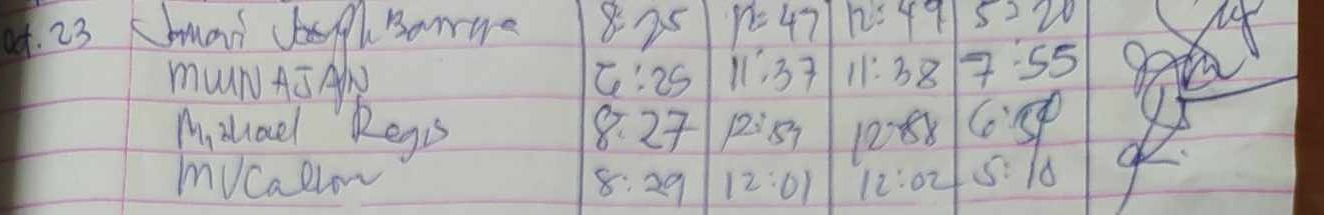 Oct. 23 Jomari Joseph Barrera 8:25 12:47 12:49 5:20
MUNAJAN 6:25 11:37 11:38 7:55
Michael Regis 8:27 12:57 12:58
8:29 12:01 12:02 5:10